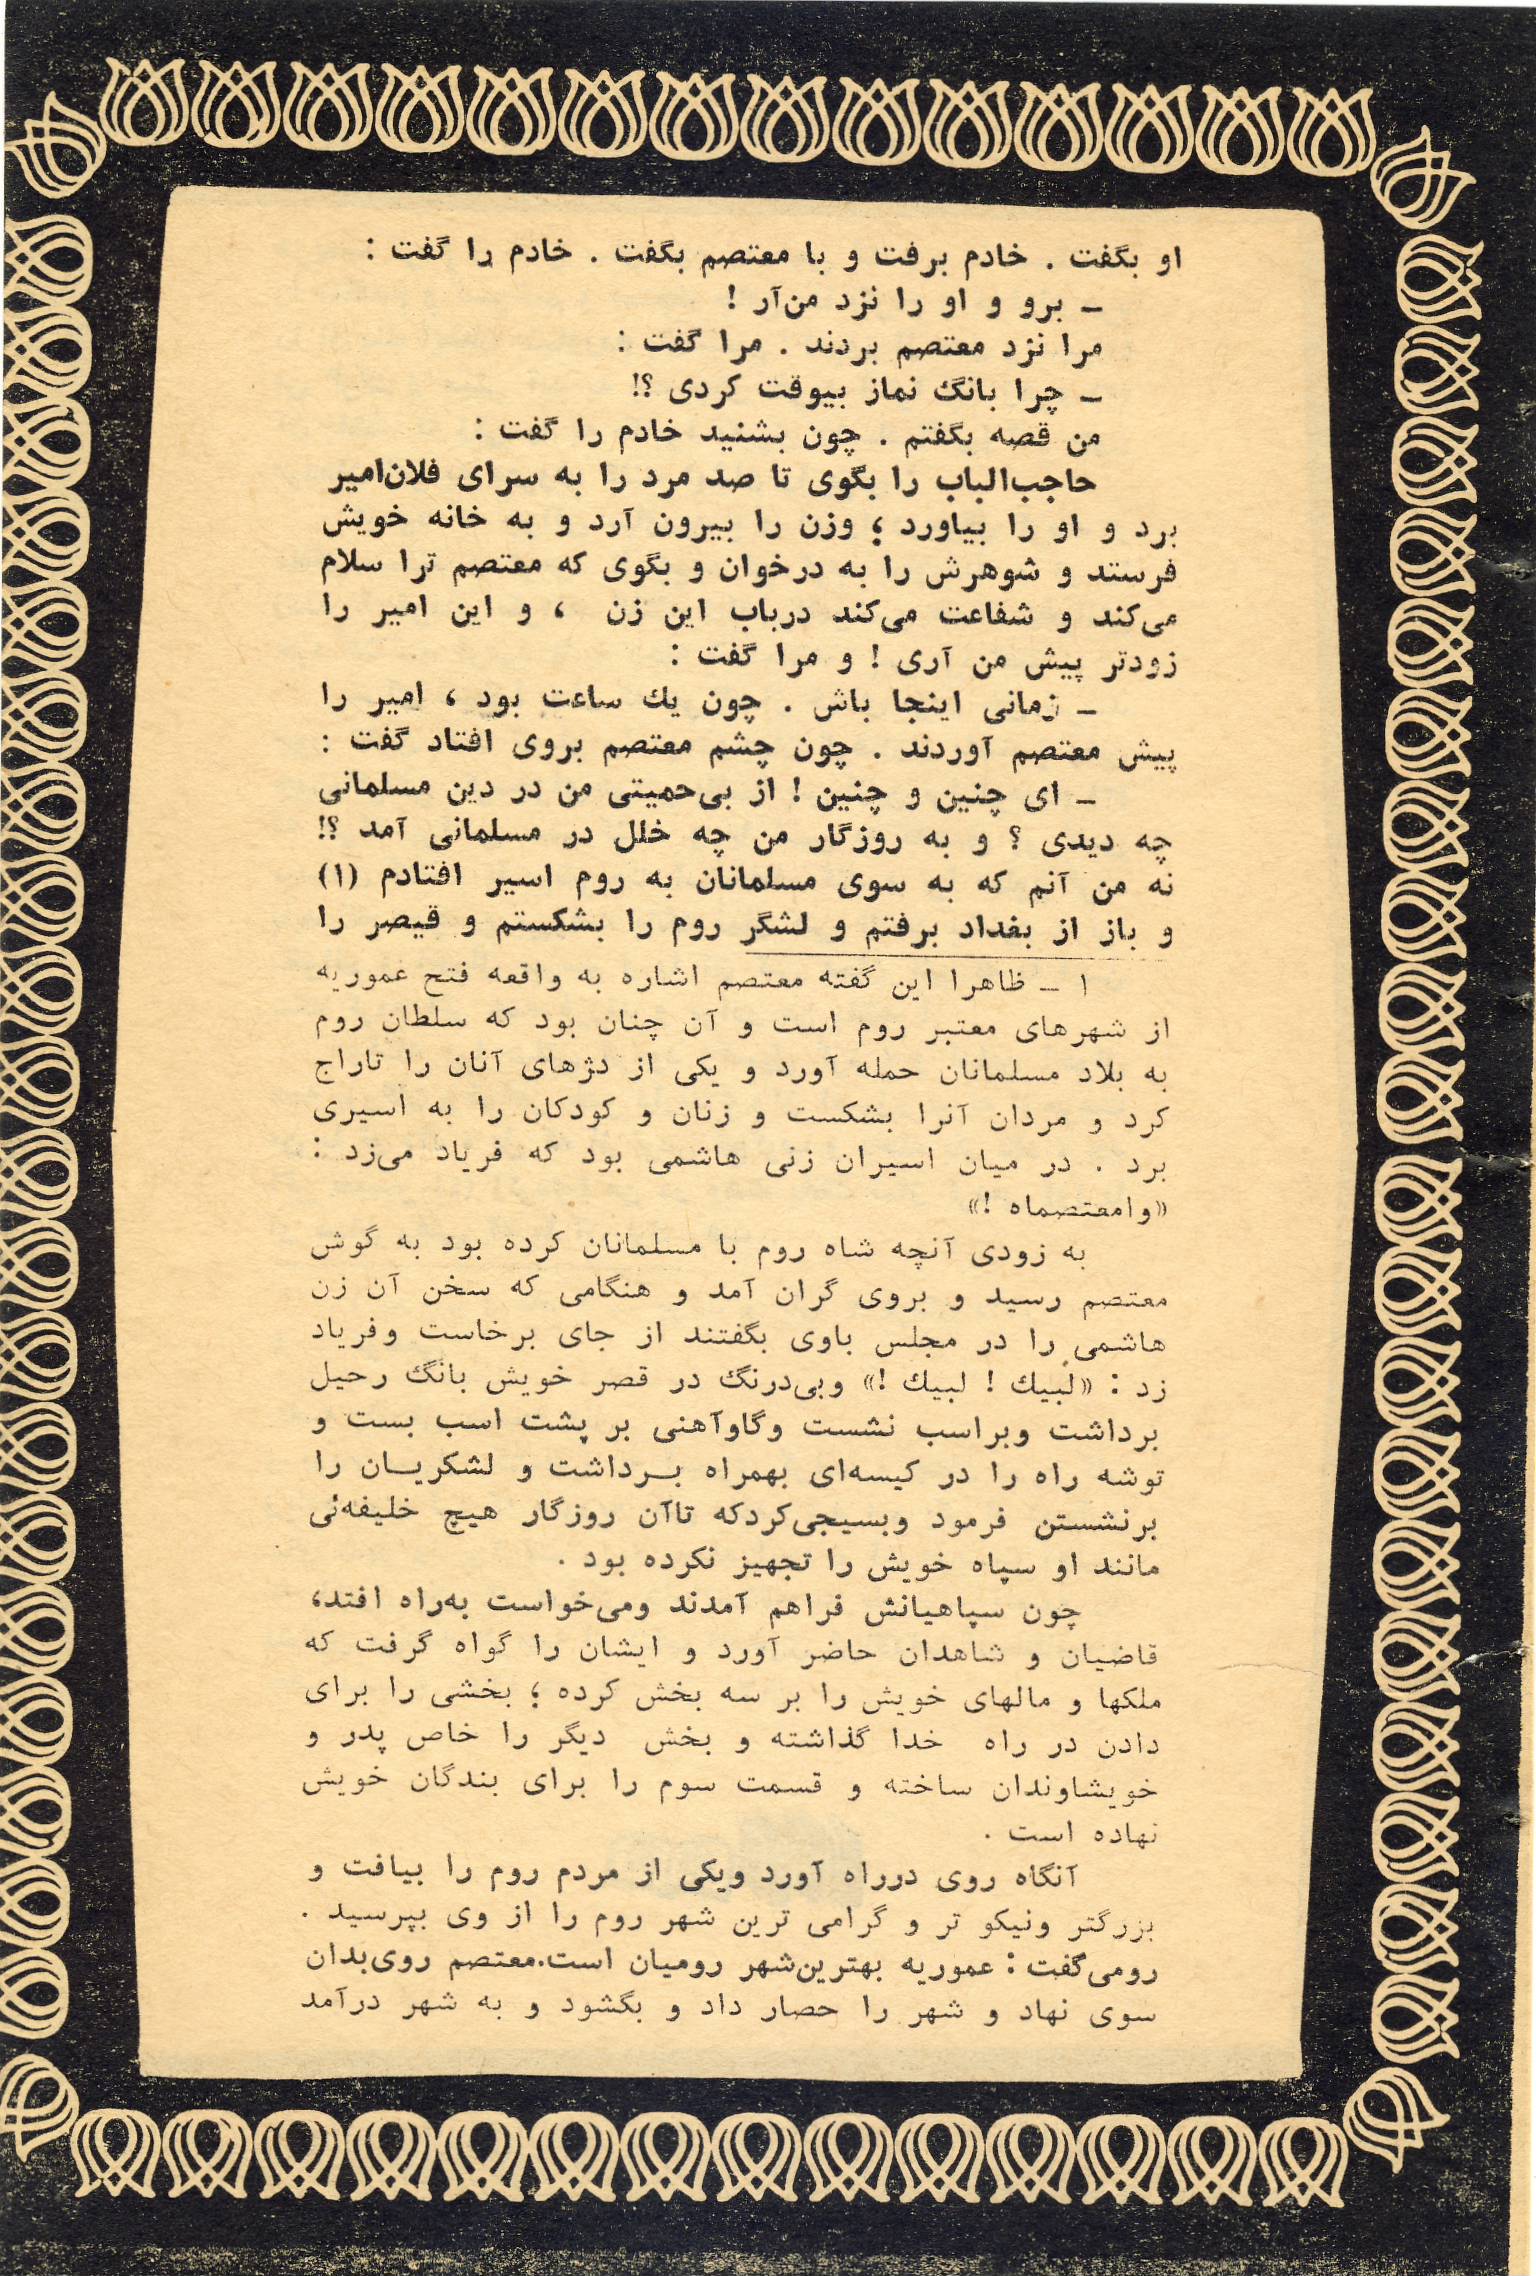 او بگفت . خادم برفت و با معتصم بگفت . خادم را گفت :
ـ برو و او را نزد من‌آر !
مرا نزد معتصم بردند . مرا گفت :
ـ چرا بانگ نماز بیوقت کردی ؟!
من قصه بگفتم . چون بشنید خادم را گفت :
حاجب‌الباب را بگوی تا صد مرد را به سرای فلان‌امیر
برد و او را بیاورد ؛ وزن را بیرون آرد و به خانه خویش
فرستد و شوهرش را به درخوان و بگوی که معتصم ترا سلام
می‌کند و شفاعت می‌کند درباب این زن ، و این امیر را
زودتر پیش من آری ! و مرا گفت :
ـ زمانی اینجا باش . چون یك ساعت بود ، امیر را
پیش معتصم آوردند . چون چشم معتصم بروی افتاد گفت :
ـ ای چنین و چنین ! از بی‌حمیتی من در دین مسلمانی
چه دیدی ؟ و به روزگار من چه خلل در مسلمانی آمد ؟!
نه من آنم که به سوی مسلمانان به روم اسیر افتادم (۱)
و باز از بغداد برفتم و لشگر روم را بشکستم و قیصر را
۱ ـ ظاهرا این گفته معتصم اشاره به واقعه فتح عموریه
از شهرهای معتبر روم است و آن چنان بود که سلطان روم
به بلاد مسلمانان حمله آورد و یکی از دژهای آنان را تاراج
کرد و مردان آنرا بشکست و زنان و کودکان را به اسیری
برد . در میان اسیران زنی هاشمی بود که فریاد می‌زد :
«وامعتصماه !»
به زودی آنچه شاه روم با مسلمانان کرده بود به گوش
معتصم رسید و بروی گران آمد و هنگامی که سخن آن زن
هاشمی را در مجلس باوی بگفتند از جای برخاست وفریاد
زد : «لبیك ! لبیك !» وبی‌درنگ در قصر خویش بانگ رحیل
برداشت وبراسب نشست وگاوآهنی بر پشت اسب بست و
توشه راه را در کیسه‌ای بهمراه بـرداشت و لشکریـان را
برنشستن فرمود وبسیجی‌کردکه تاآن روزگار هیچ خلیفه‌ئی
مانند او سپاه خویش را تجهیز نکرده بود .
چون سپاهیانش فراهم آمدند ومی‌خواست به‌راه افتد،
قاضیان و شاهدان حاضر آورد و ایشان را گواه گرفت که
ملکها و مالهای خویش را بر سه بخش کرده ؛ بخشی را برای
دادن در راه خدا گذاشته و بخش دیگر را خاص پدر و
خویشاوندان ساخته و قسمت سوم را برای بندگان خویش
نهاده است .
آنگاه روی درراه آورد ویکی از مردم روم را بیافت و
بزرگتر ونیکو تر و گرامی ترین شهر روم را از وی بپرسید .
رومی‌گفت : عموریه بهترین‌شهر رومیان است.معتصم روی‌بدان
سوی نهاد و شهر را حصار داد و بگشود و به شهر درآمد